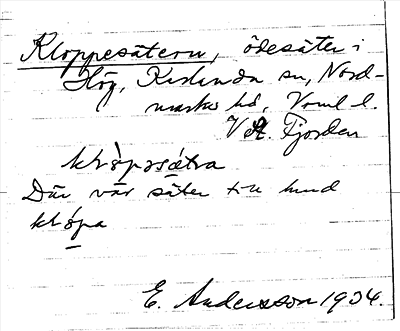 Kloppesätern, ödesäter i
Hög, Karlanda sn, Nord-
marks hd, Vrml l.
V. Fjorden
klòpəsǽtra
Där var säter till hund
klópa
E. Andersson 1934.